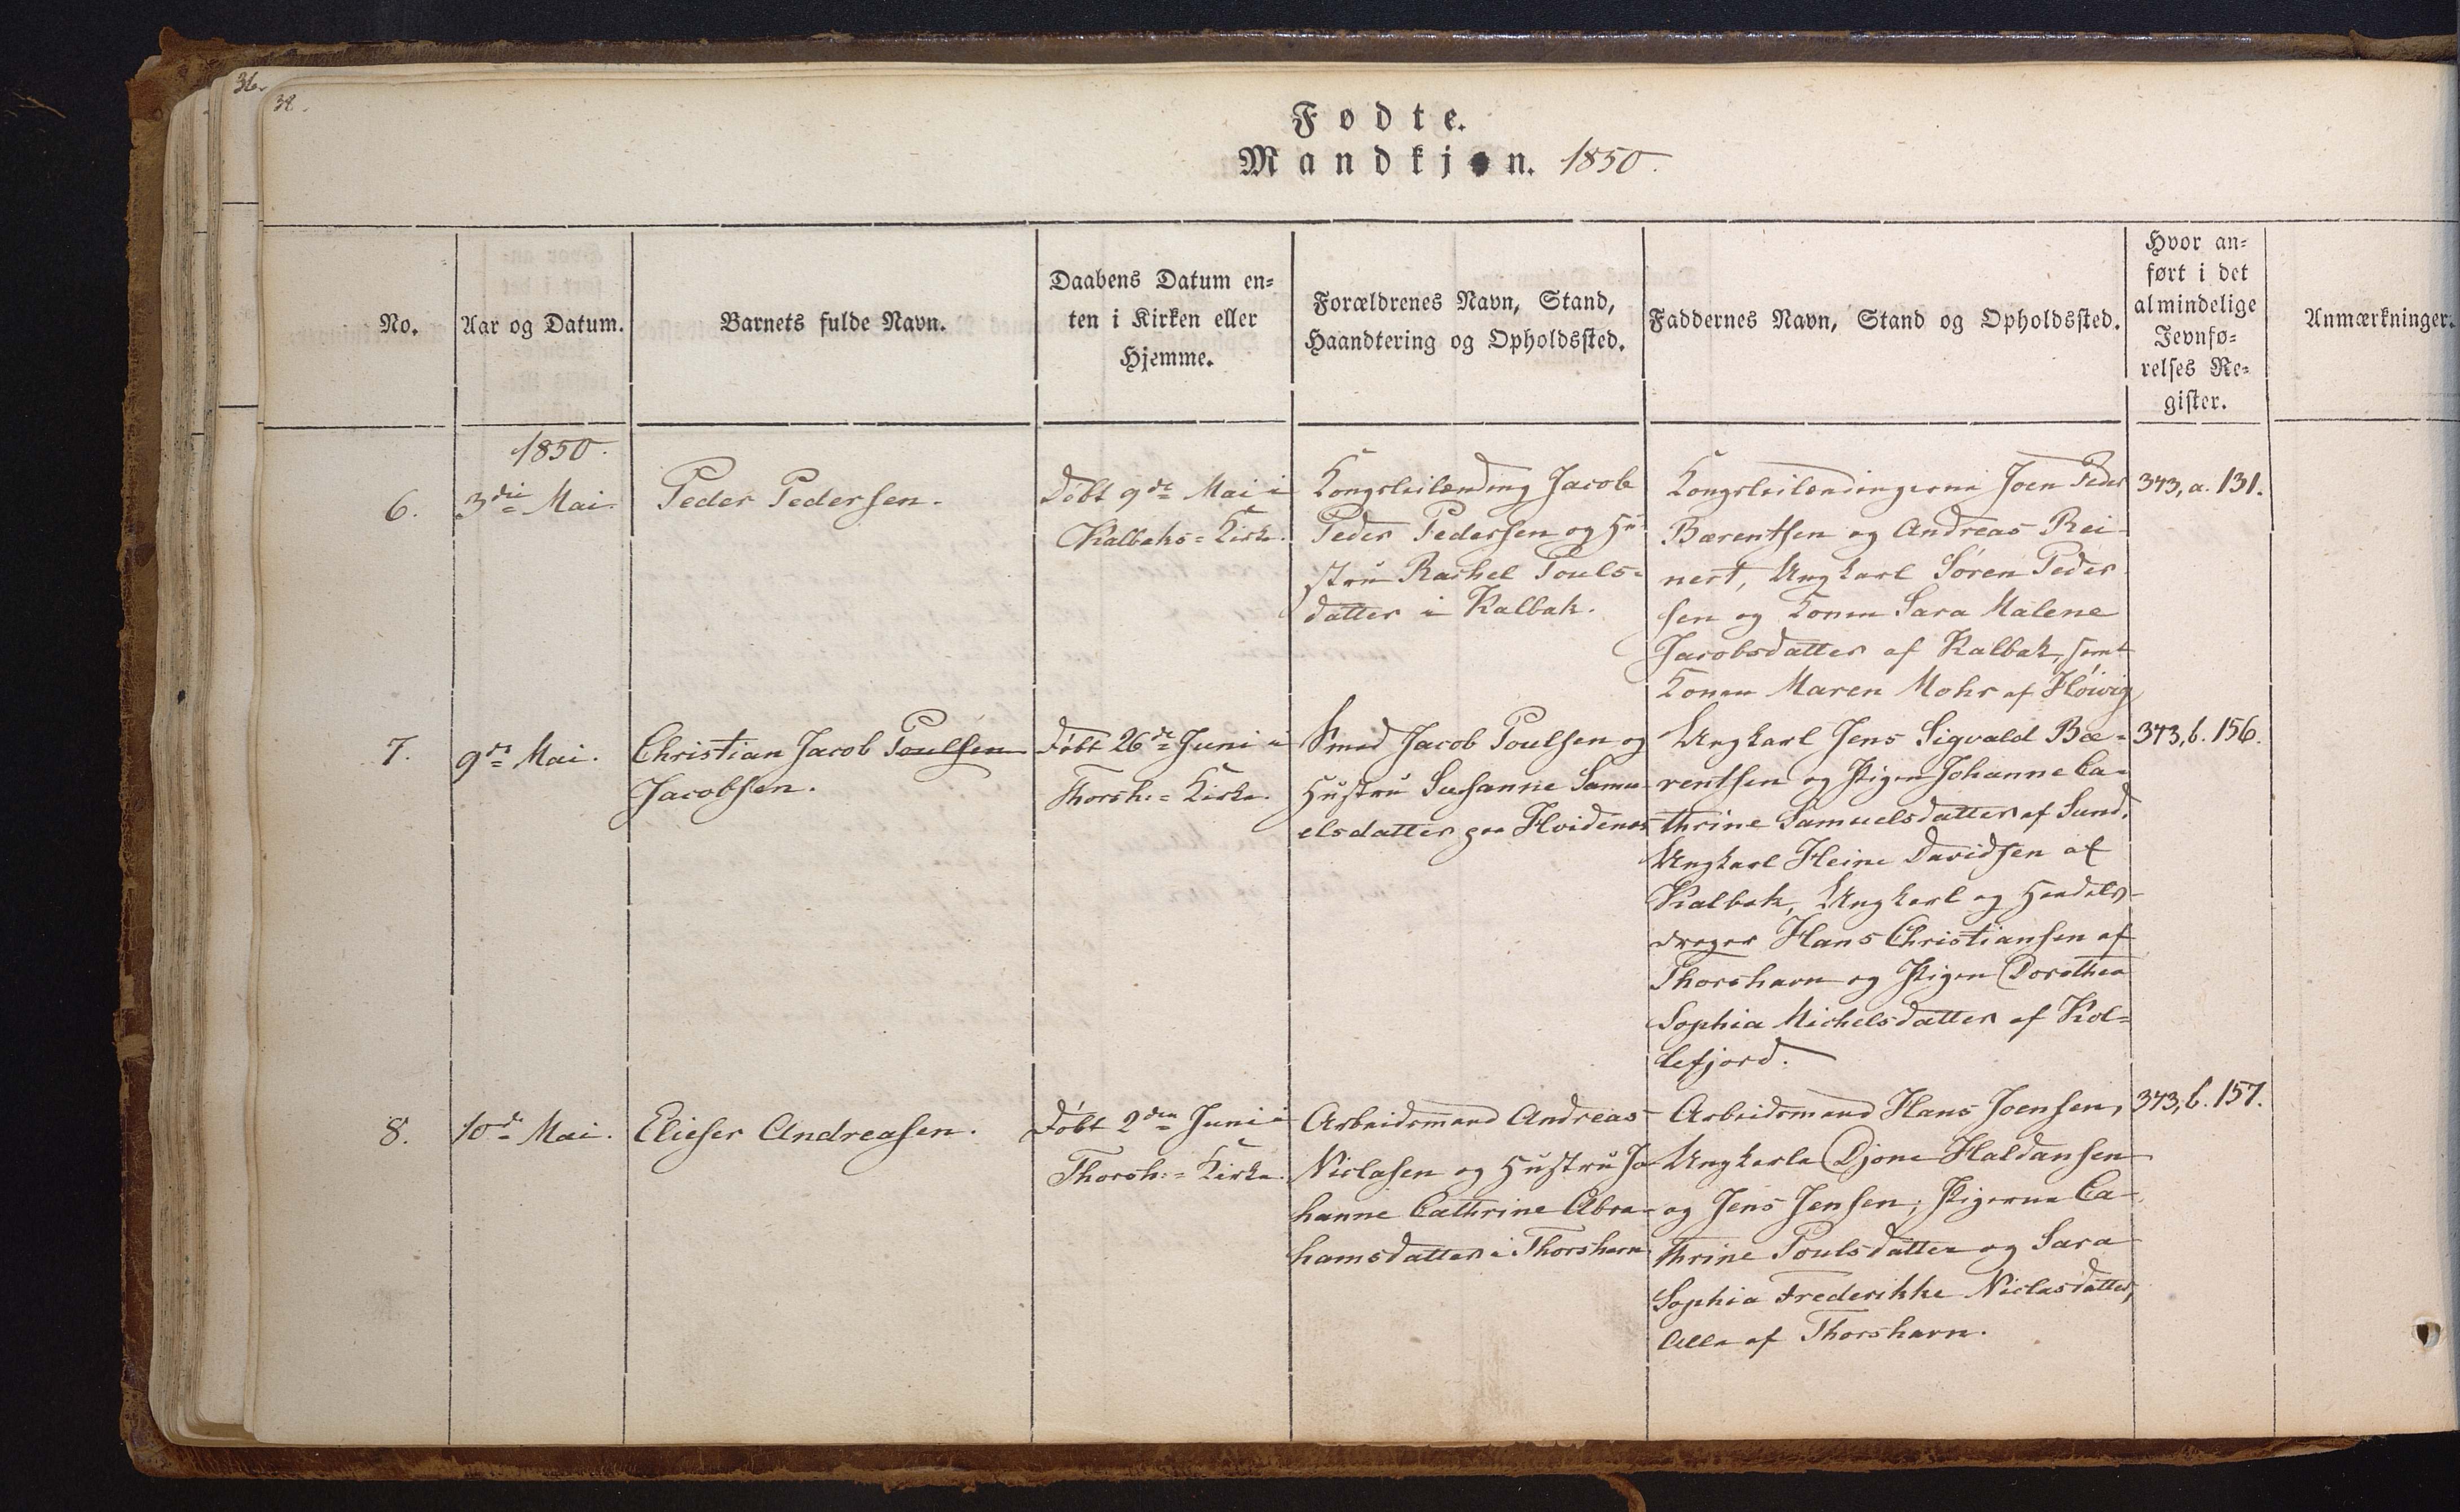 36.
38.
Fødte.
Mandkjøn. 1850.
No.
Aar og Datum.
Barnets fulde Navn.
Daabens Datum en-
ten i Kirken eller
Hjemme.
Forældrenes Navn, Stand,
Haandtering og Opholdssted.
Faddernes Navn, Stand og Opholdssted.
Hvor an-
ført i det
almindelige
Jevnfø-
relses Re-
gister.
Anmærkninger.
1850.
6.
3die Mai.
Peder Pedersen.
Döbt 9de Mai i
Kalbaks=Kirke.
Kongsleilænding Jacob
Peder Pedersen og Hu-
stru Rachel Pouls-
datter i Kalbak.
Kongsleilændingerne Joen Peder
Bærentsen og Andreas Rei-
nert, Ungkarl Sören Peder
sen og Konen Sara Malene
Jacobsdatter af Kalbak, samt
Konen Maren Mohr af Höivig
373, a. 131.
7.
9de Mai.
Christian Jacob Poulsen
Jacobsen.
Döbt 26de Juni i
Thorsh:=Kirke.
Smed Jacob Poulsen og
Hustru Susanne Samu-
elsdatter paa Hvidenæs
Ungkarl Jens Sigvald Bæ-
rentsen og Pigen Johanne Ca-
thrine Samuelsdatter af Sund,
Ungkarl Heine Davidsen af
Kalbak, Ungkarl og Handels-
drager Hans Christiansen af
Thorshavn og Pigen Dorothea
Sophia Michelsdatter af Kol-
lefjord.
373, b. 156.
8.
10de Mai.
Elieser Andreasen.
Döbt 2den Juni i
Thorsh:=Kirke.
Arbeidsmand Andreas
Niclasen og Hustru Jo-
hanne Cathrine Abra-
hamsdatter i Thorshavn
Arbeidsmand Hans Joensen,
Ungkarle Djone Haldansen
og Jens Jensen; Pigerne Ca-
thrine Poulsdatter og Sara
Sophia Frederikke Niclasdatter,
Alle af Thorshavn.
373, b. 157.